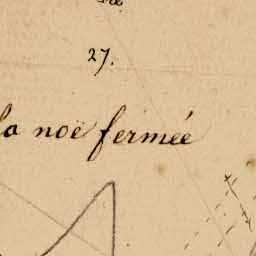 27.
la noë fermée